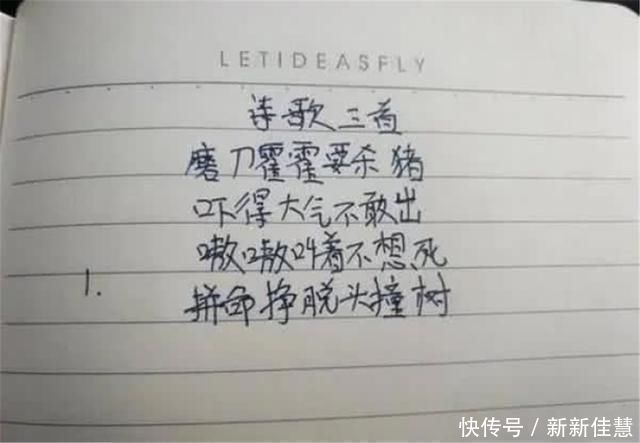 LETIDEASFLY
诗歌三首
磨刀霍霍要杀猪
吓得大气不敢出
嗷嗷叫着不想死
1.
拼命挣脱头撞树
快传号 / 新新佳慧